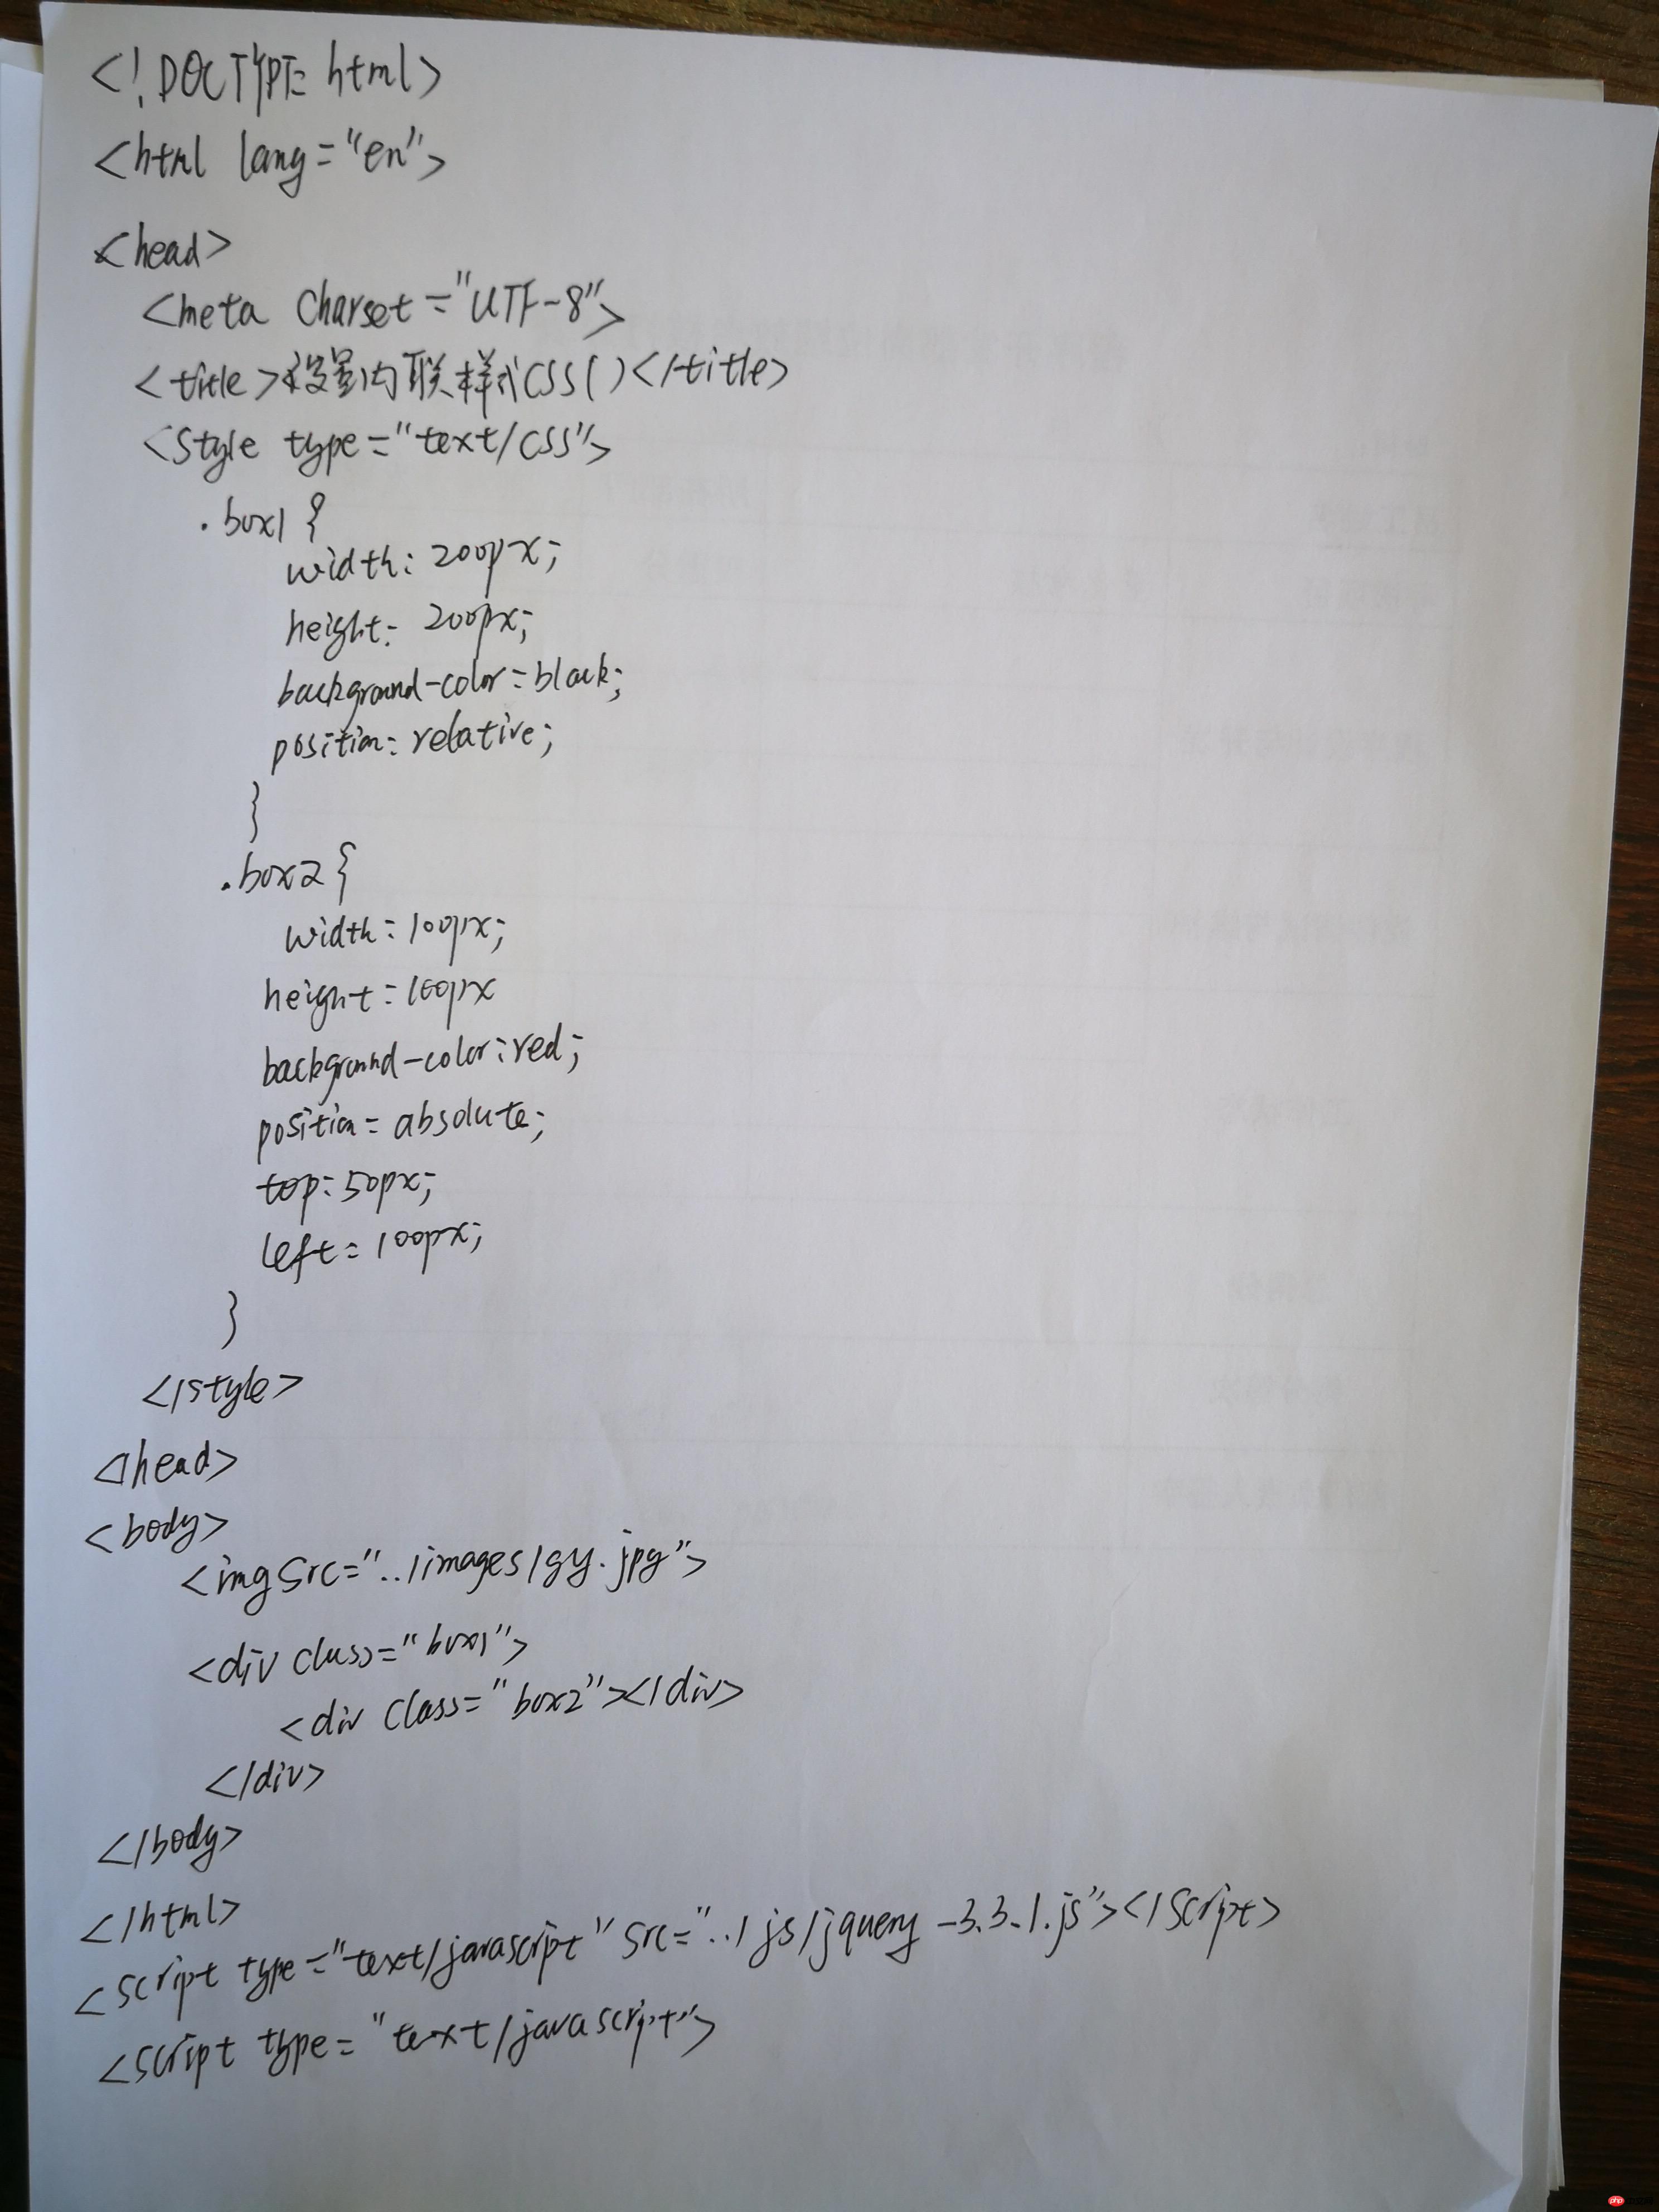 <!DOCTYPE html>
<html lang="en">
<head>
<meta charset="UTF-8">
<title>设置内联样式CSS()</title>
<style type="text/css">
.box1 {
width: 200px;
height: 200px;
background-color: black;
position: relative;
}
.box2 {
width: 100px;
height: 100px
background-color: red;
position: absolute;
top: 50px;
left: 100px;
}
</style>
</head>
<body>
<img src="../images/gy.jpg">
<div class="box1">
<div class="box2"></div>
</div>
</body>
</html>
<script type="text/javascript" src="../js/jquery-3.3.1.js"></script>
<script type="text/javascript">
php